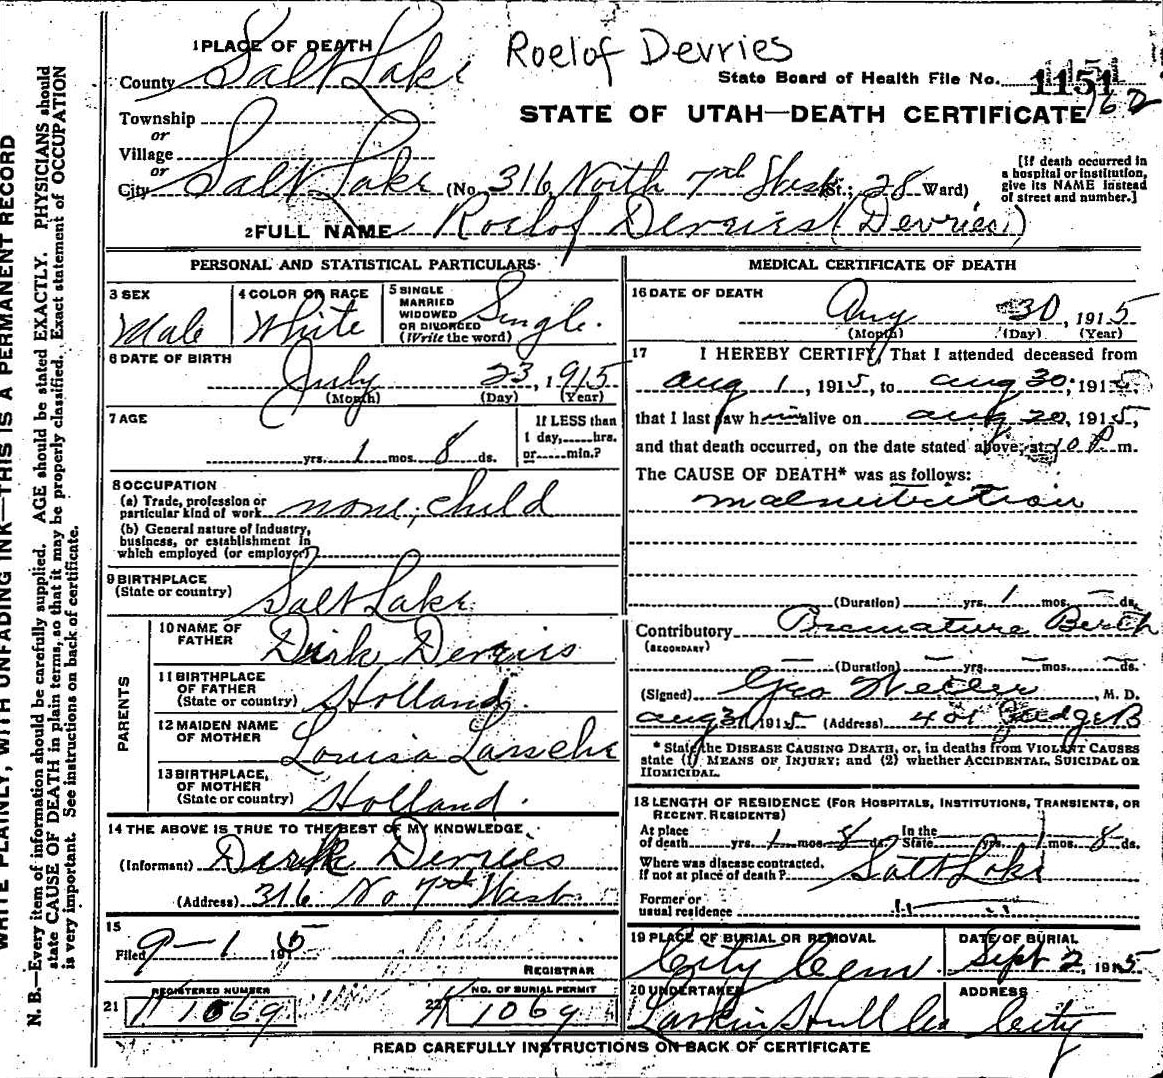 WRITE PLAINLY, WITH UNFADING INK—THIS IS A PERMANENT RECORD
N. B.—Every item of information should be carefully supplied. AGE should be stated EXACTLY. PHYSICIANS should
state CAUSE OF DEATH in plain terms, so that it may be properly classified. Exact statement of OCCUPATION
is very important. See instructions on back of certificate.
Roelof Devries
1 PLACE OF DEATH
County Salt Lake
State Board of Health File No. 1151
162
STATE OF UTAH—DEATH CERTIFICATE
Township
or
Village
or
City Salt Lake (No. 316 North 7th West St.; 28 Ward)
[If death occurred in
a hospital or institution,
give its NAME instead
of street and number.]
2 FULL NAME Roelof Devries (Devries)
PERSONAL AND STATISTICAL PARTICULARS
3 SEX
Male
4 COLOR OR RACE
White
5 SINGLE
MARRIED
WIDOWED
OR DIVORCED
(Write the word)
Single.
6 DATE OF BIRTH
July 23, 1915
(Month) (Day) (Year)
7 AGE
yrs. 1 mos. 8 ds.
If LESS than
1 day, hrs.
or min.?
8 OCCUPATION
(a) Trade, profession or
particular kind of work none, child
(b) General nature of industry,
business, or establishment in
which employed (or employer)
9 BIRTHPLACE
(State or country) Salt Lake
PARENTS
10 NAME OF
FATHER Dirk Devries
11 BIRTHPLACE
OF FATHER
(State or country) Holland.
12 MAIDEN NAME
OF MOTHER Louisa
13 BIRTHPLACE,
OF MOTHER
(State or country) Holland.
14 THE ABOVE IS TRUE TO THE BEST OF MY KNOWLEDGE
(Informant) Dirk Devries
(Address) 316 No 7th West
15
Filed 9-1 1915
REGISTRAR
21 REGISTERED NUMBER
1069
22 NO. OF BURIAL PERMIT
1069
MEDICAL CERTIFICATE OF DEATH
16 DATE OF DEATH
Aug 30, 1915
(Month) (Day) (Year)
17 I HEREBY CERTIFY, That I attended deceased from
Aug 1, 1915, to Aug 30, 1915,
that I last saw him alive on Aug 20, 1915,
and that death occurred, on the date stated above, at 10 P. m.
The CAUSE OF DEATH* was as follows:
malnutrition
(Duration) yrs. 1 mos. — ds.
Contributory Premature Berth
(SECONDARY)
— (Duration) — yrs. — mos. — ds.
(Signed) Geo , M. D.
Aug 31 1915 (Address) 401 Judge B
* State the DISEASE CAUSING DEATH, or, in deaths from VIOLENT CAUSES
state (1) MEANS OF INJURY; and (2) whether ACCIDENTAL, SUICIDAL OR
HOMICIDAL.
18 LENGTH OF RESIDENCE (FOR HOSPITALS, INSTITUTIONS, TRANSIENTS, OR
RECENT RESIDENTS)
At place
of death yrs. 1 mos. 8 ds. In the
State yrs. 1 mos. 8 ds.
Where was disease contracted,
if not at place of death? Salt Lake
Former or
usual residence " "
19 PLACE OF BURIAL OR REMOVAL
City Cem
DATE OF BURIAL
Sept 2, 1915
20 UNDERTAKER
Larkin Hull Co
ADDRESS
City
READ CAREFULLY INSTRUCTIONS ON BACK OF CERTIFICATE